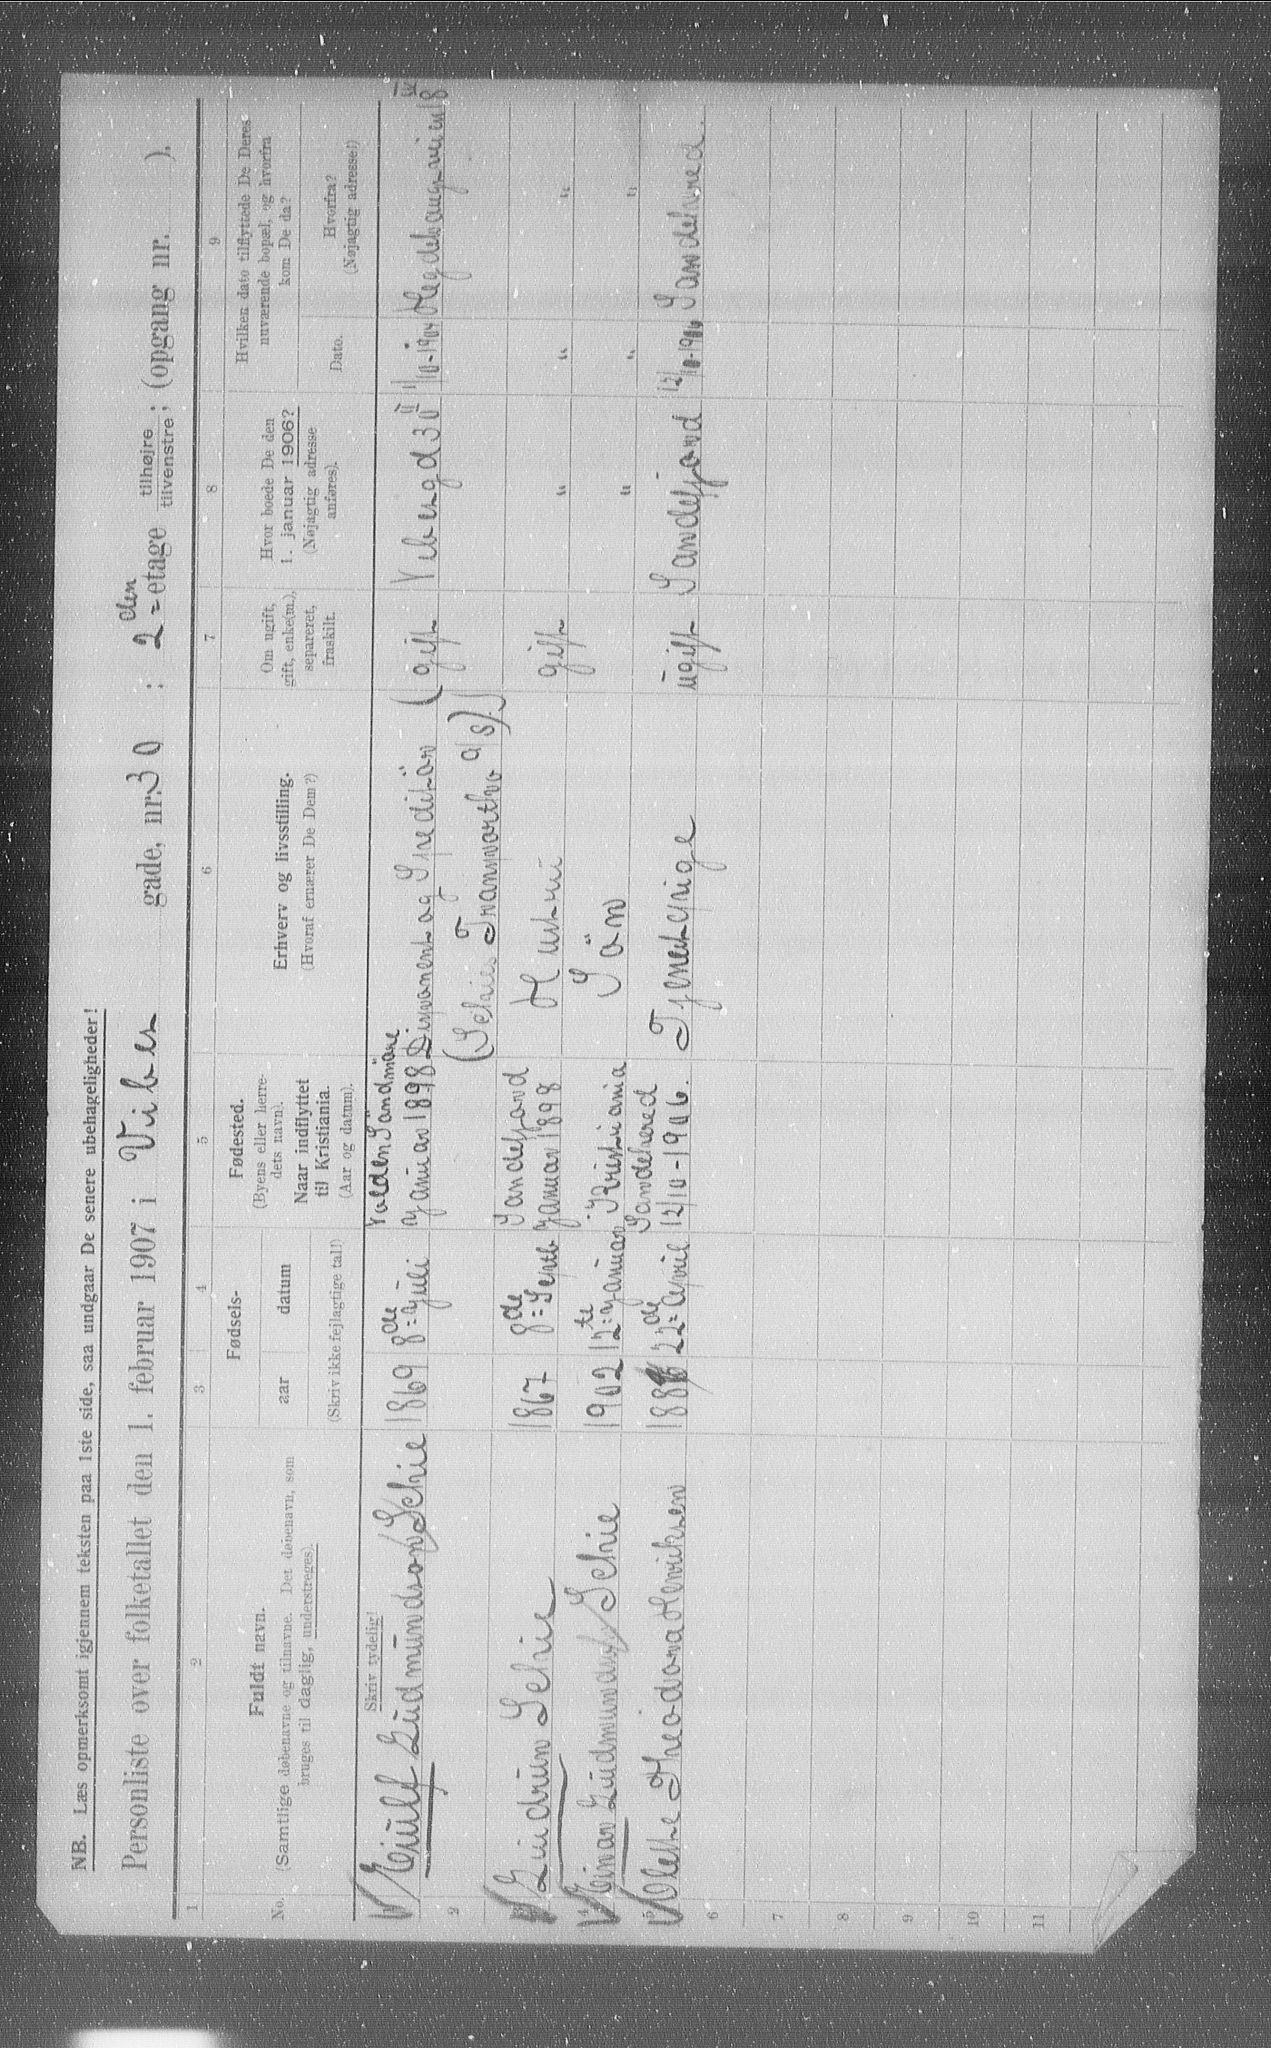 NB. Læs opmerksomt igjennem teksten paa 1ste side, saa undgaar De senere ubehageligheder!
Personliste over folketallet den 1. februar 1907 i Vibes gade, nr. 30 : 2den etage tilhøjre / tilvenstre; (opgang nr. ).
1 2 3 4 5 6 7 8 9
No.
Fuldt navn.
(Samtlige døbenavne og tilnavne. Det døbenavn, som
bruges til daglig, understreges).
Fødsels-
aar datum
(Skriv ikke fejlagtige tal!)
Fødested.
(Byens eller herre-
dets navn).
Naar indflyttet
til Kristiania.
(Aar og datum).
Erhverv og livsstilling.
(Hvoraf ernærer De Dem?)
Om ugift,
gift, enke(m.),
separeret,
fraskilt.
Hvor boede De den
1. januar 1906?
(Nøjagtig adresse
anføres).
Hvilken dato tilflyttede De Deres
nuværende bopæl, og hvorfra
kom De da?
Dato.
Hvorfra?
(Nøjagtig adresse!)
Skriv tydelig!
Volden Søndmøre
1 Eiulf Gudmundson Schie 1869 8de Juli Januar 1898 Disponent og Speditør gift Vibesgd 30 II 1/10-1904 Hegdehaugsveien 18
2 (Schies Transportbo a/s)
3 Gudrun Schie 1867 8de Septb Sandefjord Januar 1898 Hustru gift " " "
4 Einar Gudmunds Schie 1902 12te Januar Kristiania Søn " " "
5 Olette Theodora Henriksen 22de April Sandehered 12/10-1906. Tjenestepige ugift Sandefjord 12/10-1906 Sandehered.
6
7
8
9
10
11